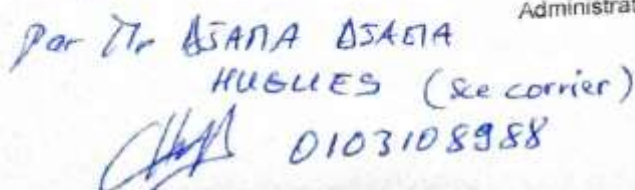 Administrat
Par Mr DJAMA DJAMA
HUGUES (sce corrier)
0103108988